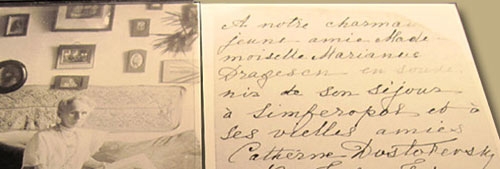 A notre charma
jeune amie Made-
moiselle Marianne
Dragesen en souve
nir de son séjour
à Simferopol et à
ses vielles amies
Catherne Dostoïevsky